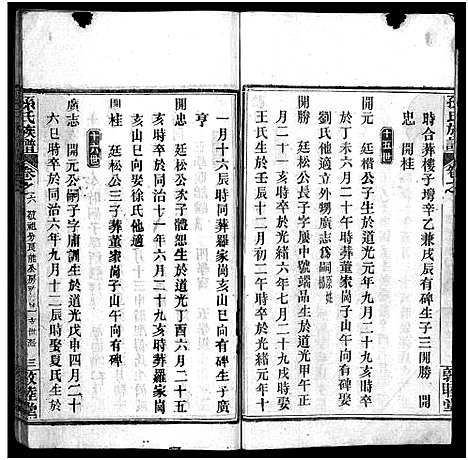 時合葬樓子塆辛乙兼戌辰有碑生子三開勝 開
忠 開桂
十五世
開元 廷楷公子生於道光元年九月二十亥時卒
於丁未六月二十午時葬董家崗子山午向有碑娶
劉氏他適立外甥廣志為嗣
開勝 廷松公長子字體端品生於道光甲午正
月二十一亥時卒於光緒六年七月二十九戌時娶
王氏生於壬辰十二月初二午時卒於光緒元年十
孫氏族譜 卷之六
三 敦睦堂
一月十六辰時同葬羅家崗亥山向有碑生子廣
亨
開忠 廷松公次子體恕生於道光丁酉六月二十五
亥時卒於同治十一年六月二十九亥時葬羅家崗
亥山巳向娶徐氏他適
開桂 廷松公三子葬董家崗子山午向有碑
十六世
廣志 開元公嗣子字庸訓生於道光戊申四月二十
六巳時卒於同治六年九月十二辰時娶夏氏生於